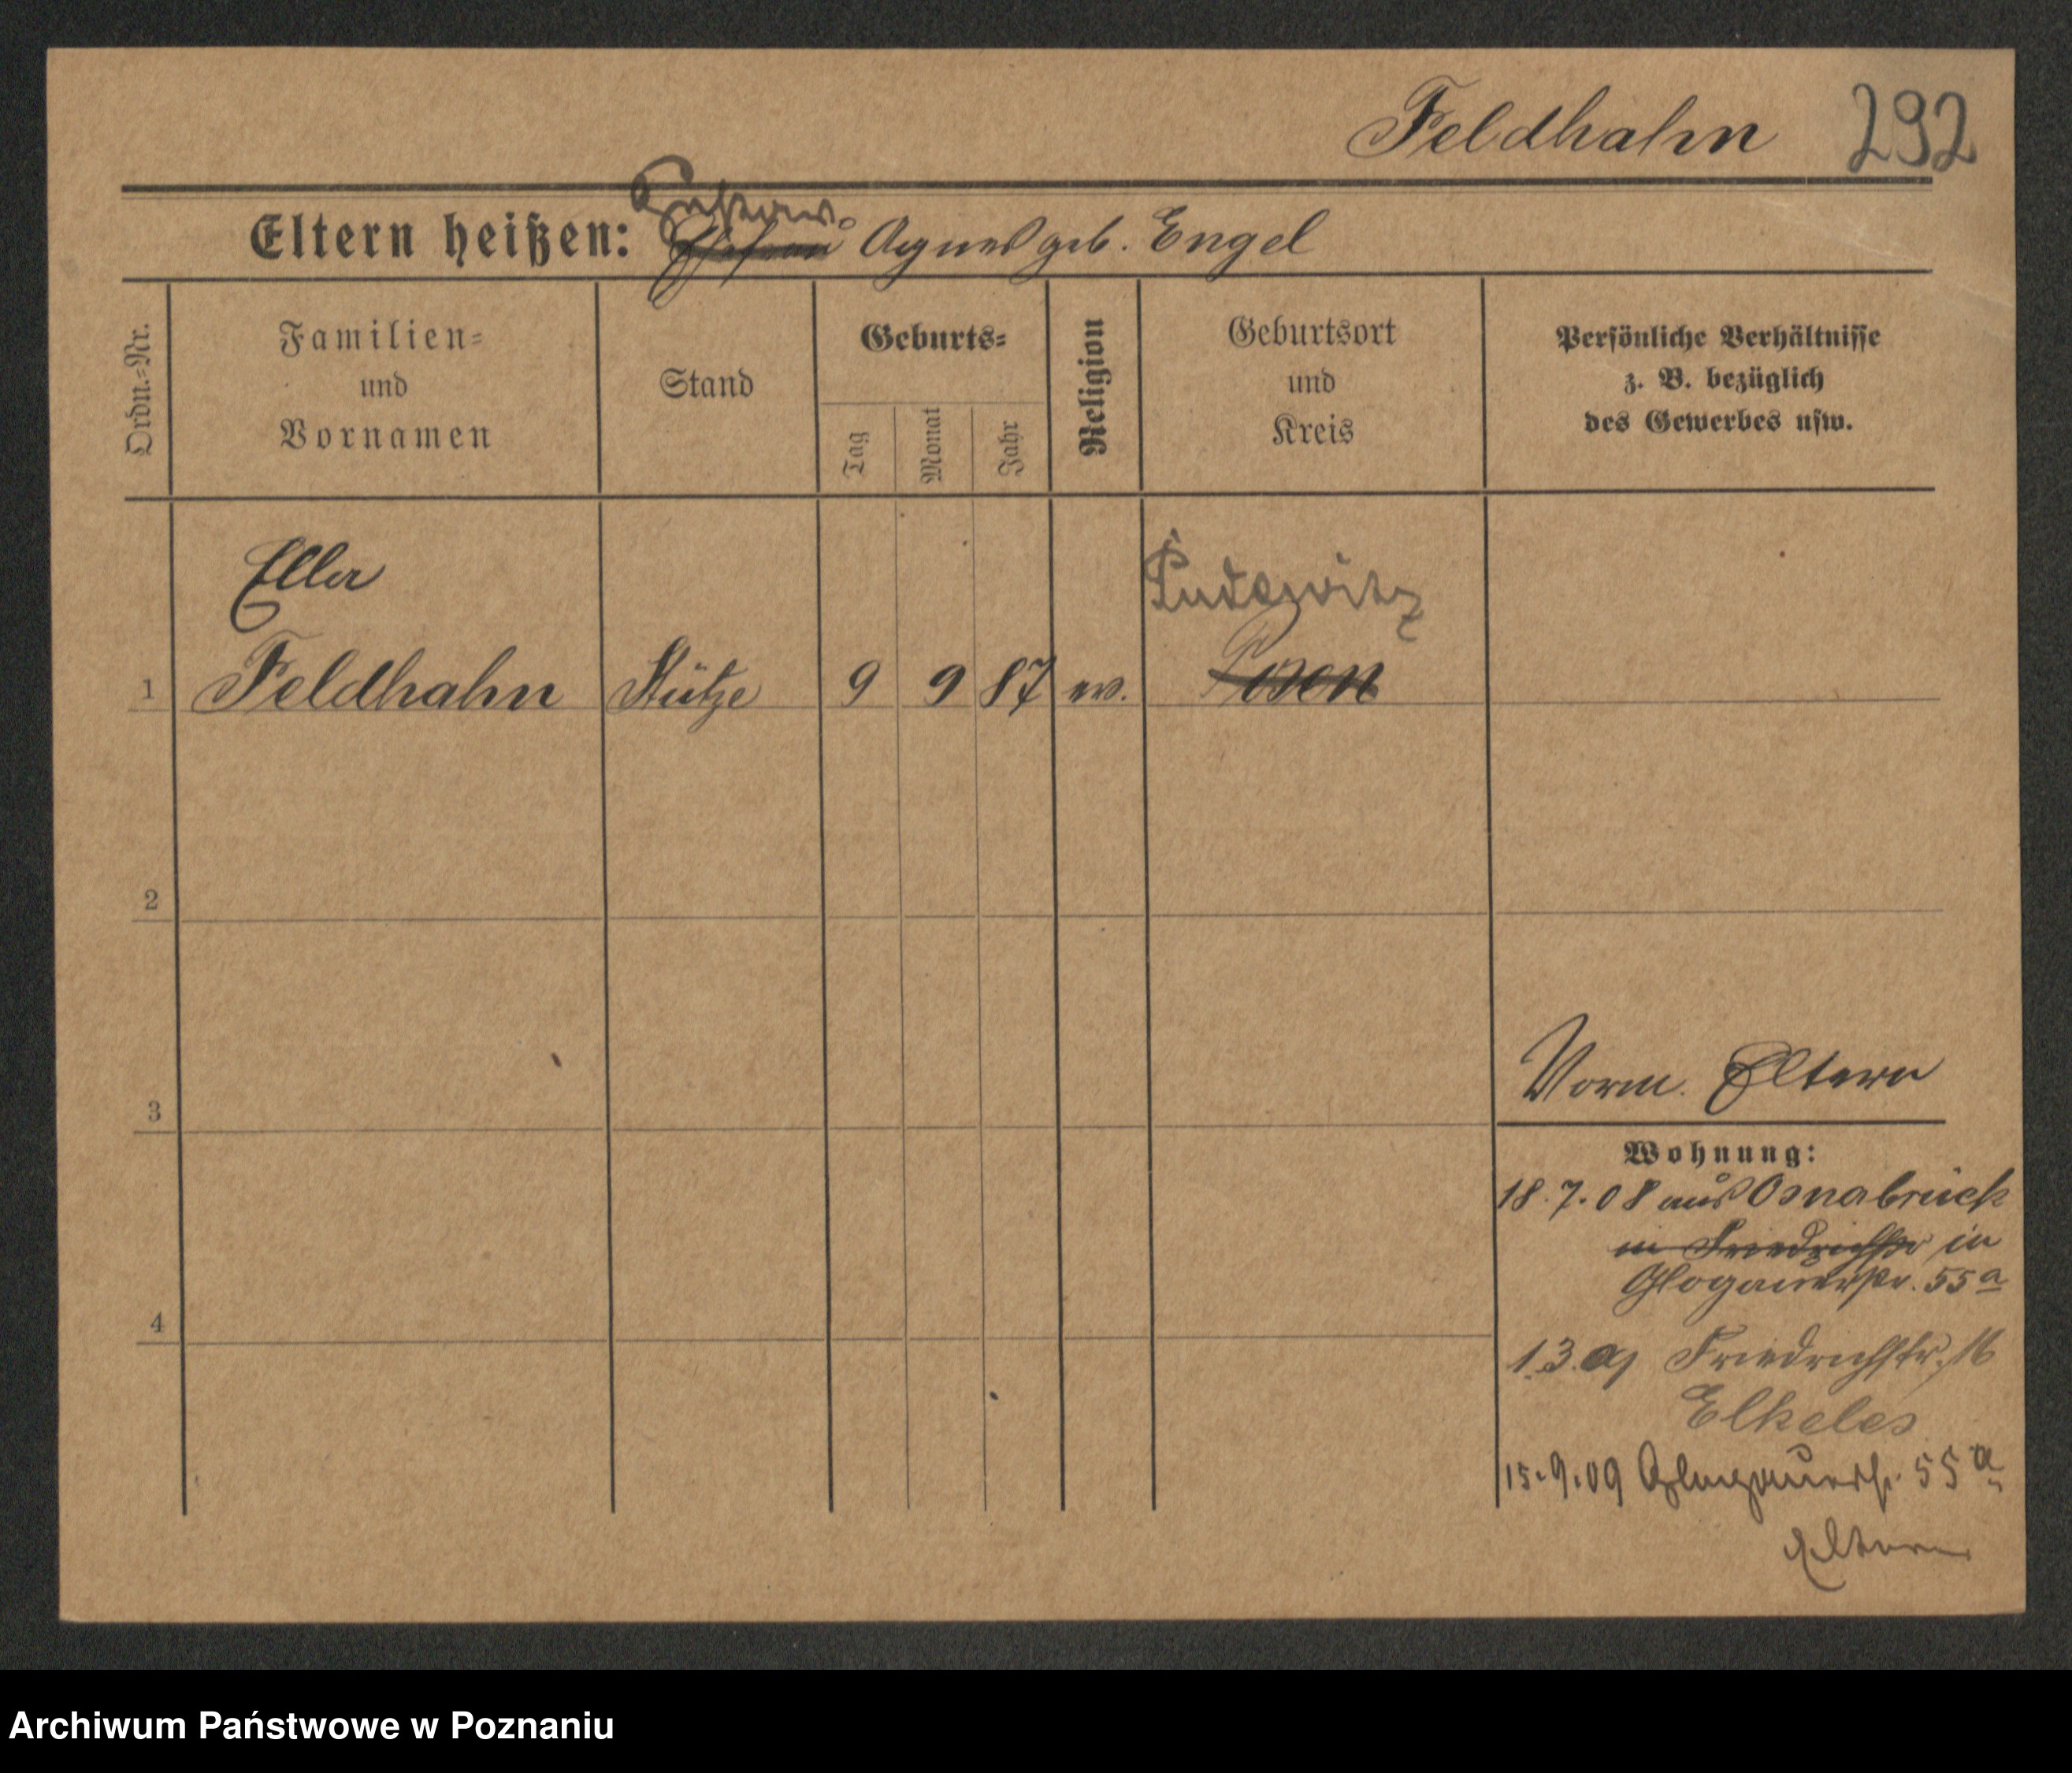 Feldhahn 292
Gustav
Eltern heißen: Ehefrau Agnes geb. Engel
Ordn.=Nr.
Familien=
und
Vornamen
Stand
Geburts=
Tag
Monat
Jahr
Religion
Geburtsort
und
Kreis
Persönliche Verhältnisse
z. B. bezüglich
des Gewerbes usw.
Pudewitz
1 Feldhahn Stütze 9 9 87 ev. Posen
2
3
4
Vorm. Eltern
Wohnung:
18.7.08 aus Osnabrück
in Friedrichstr in
Glogauerstr. 55a
1.3.09 Friedrichstr. 16
Elkeles
15.9.09 Glogauerstr. 55a
Eltern
Archiwum Państwowe w Poznaniu